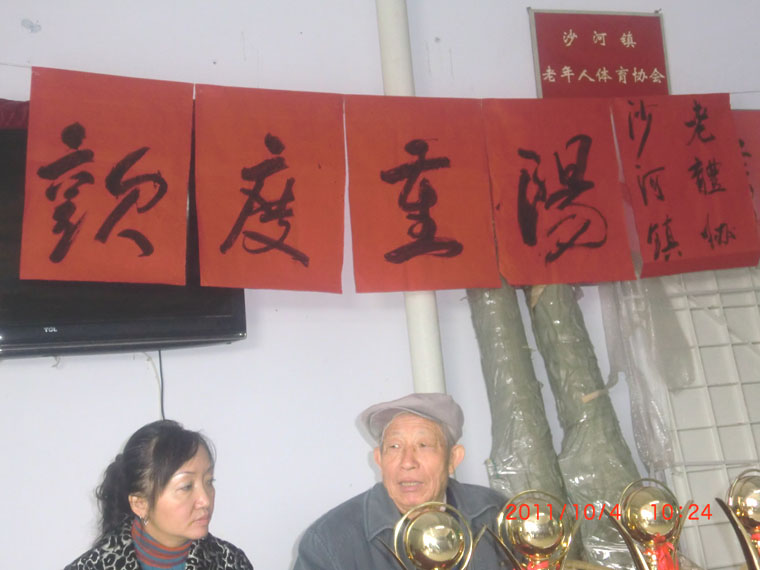 歡度重陽
沙河镇
老體协
沙河镇
老年人体育协会
TCL
2011/10/4 10:24